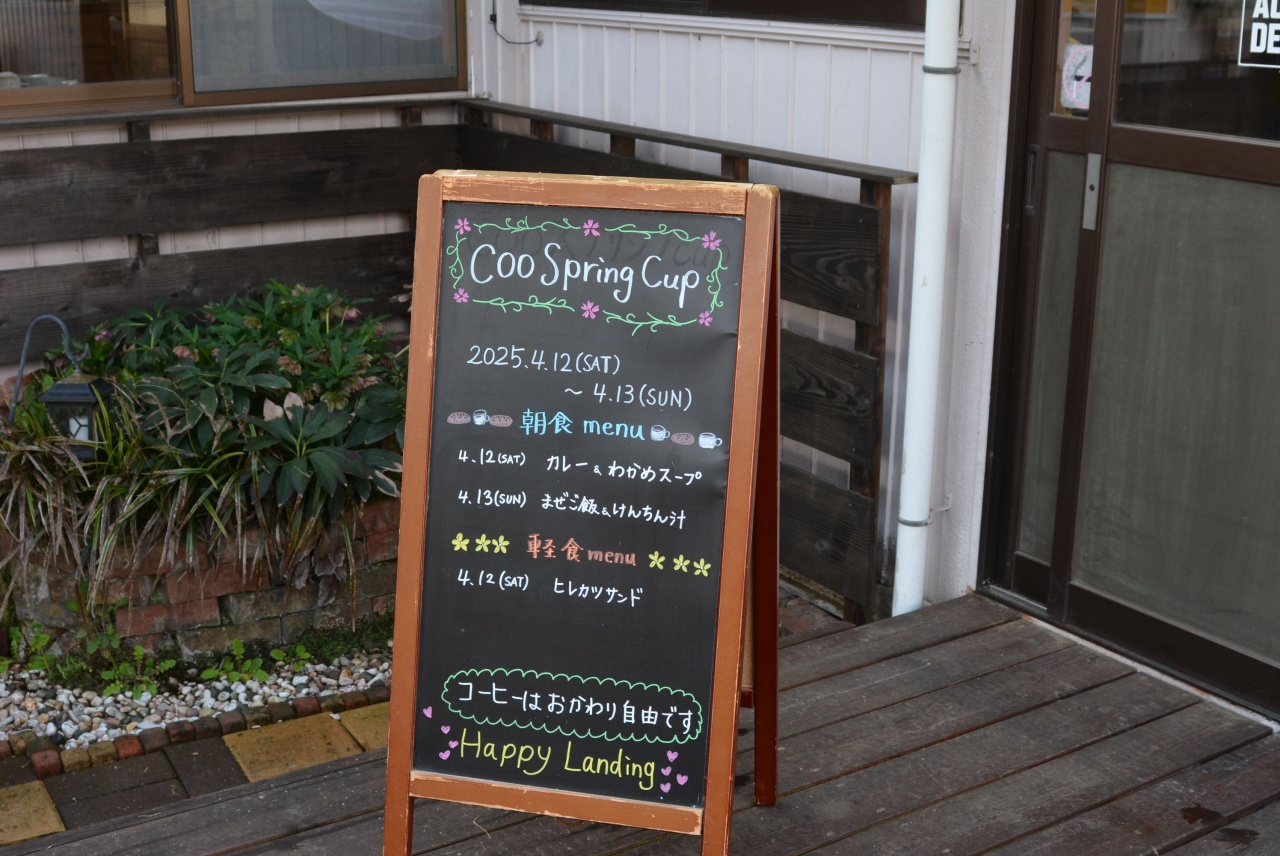 Coo Spring Cup
2025.4.12(SAT)
～ 4.13(SUN)
朝食 menu
4.12(SAT) カレー & わかめスープ
4.13(SUN) まぜご飯 & けんちん汁
軽食 menu
4.12(SAT) ヒレカツサンド
コーヒーはおかわり自由です
Happy Landing